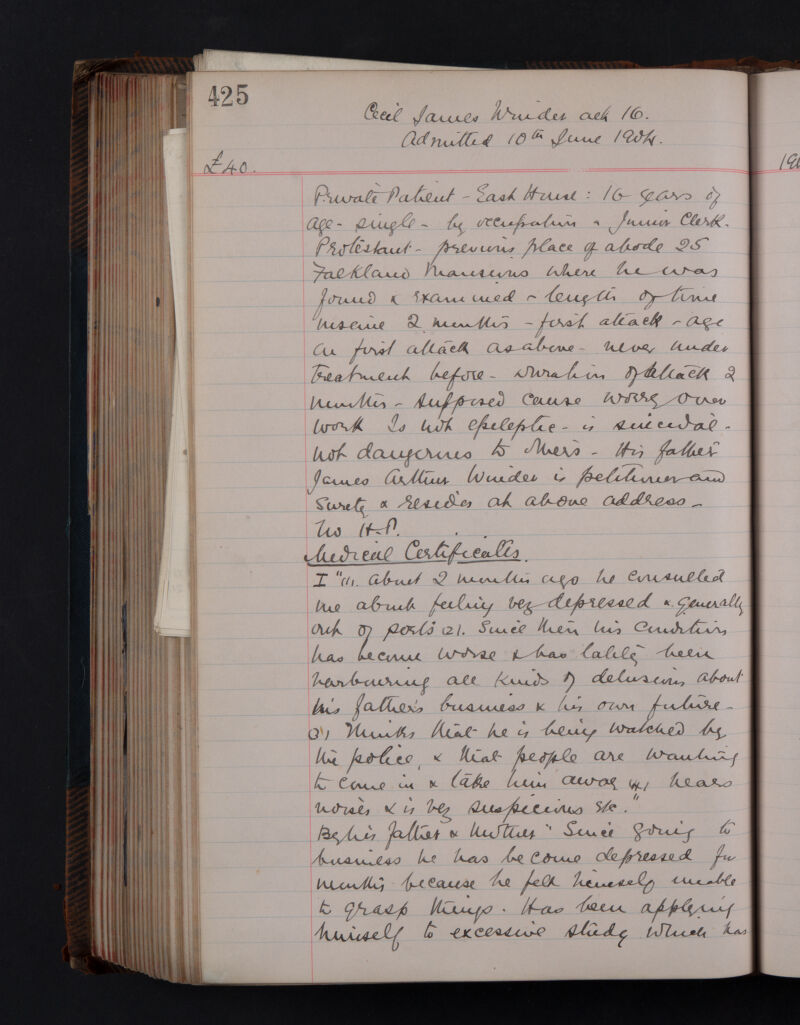 425
Cecil James Winder aet 16.
Admitted 10th June 1904.
£40.
190
Private Patient - East House: 16 years of
age - single - by occupation a Junior Clerk.
Protestant - previous place of abode 25
Falkland Mansions where he was
found & examined - length of time
insane 2 months - first attack - age
on first attack as above - never under
treatment before - duration of attack 2
months - supposed cause worry over
work Is not epileptic - is suicidal -
not dangerous to others - His father
James Arthur Winder is petitioner and
Surety & resides at above address -
No H.P.
Medical Certificates.
I "(1). About 2 months ago he consulted
me about feeling very depressed & generally
out of sorts (2). Since then his condition
has become worse & has lately been
harbouring all kinds of delusions about
his father's business & his own future -
(3) Thinks that he is being watched by
the police, & that people are wanting
to come in & take him away (4) hears
noises & is very suspicious etc."
By his father & mother "Since going to
business he has become depressed for
months because he felt himself unable
to grasp things. Has been applying
himself to excessive study which has